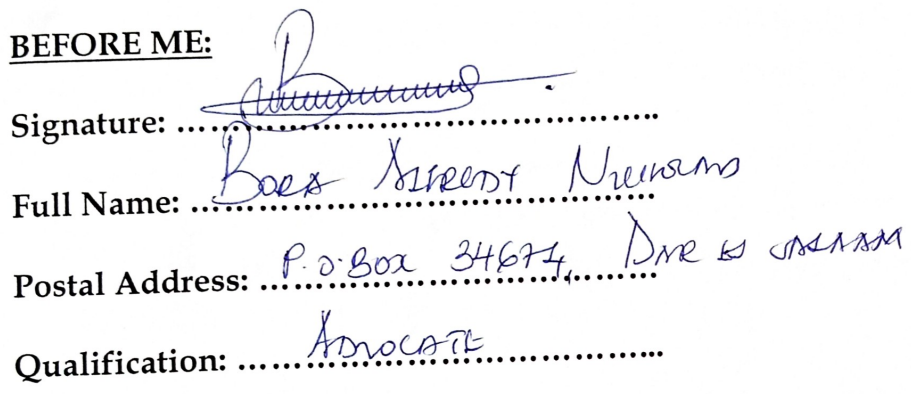 BEFORE ME:
Signature: ........................................
Full Name: BORA ALFREDY NICHOLAUS
Postal Address: P.O.BOX 34674, DAR ES SALAAM
Qualification: ADVOCATE